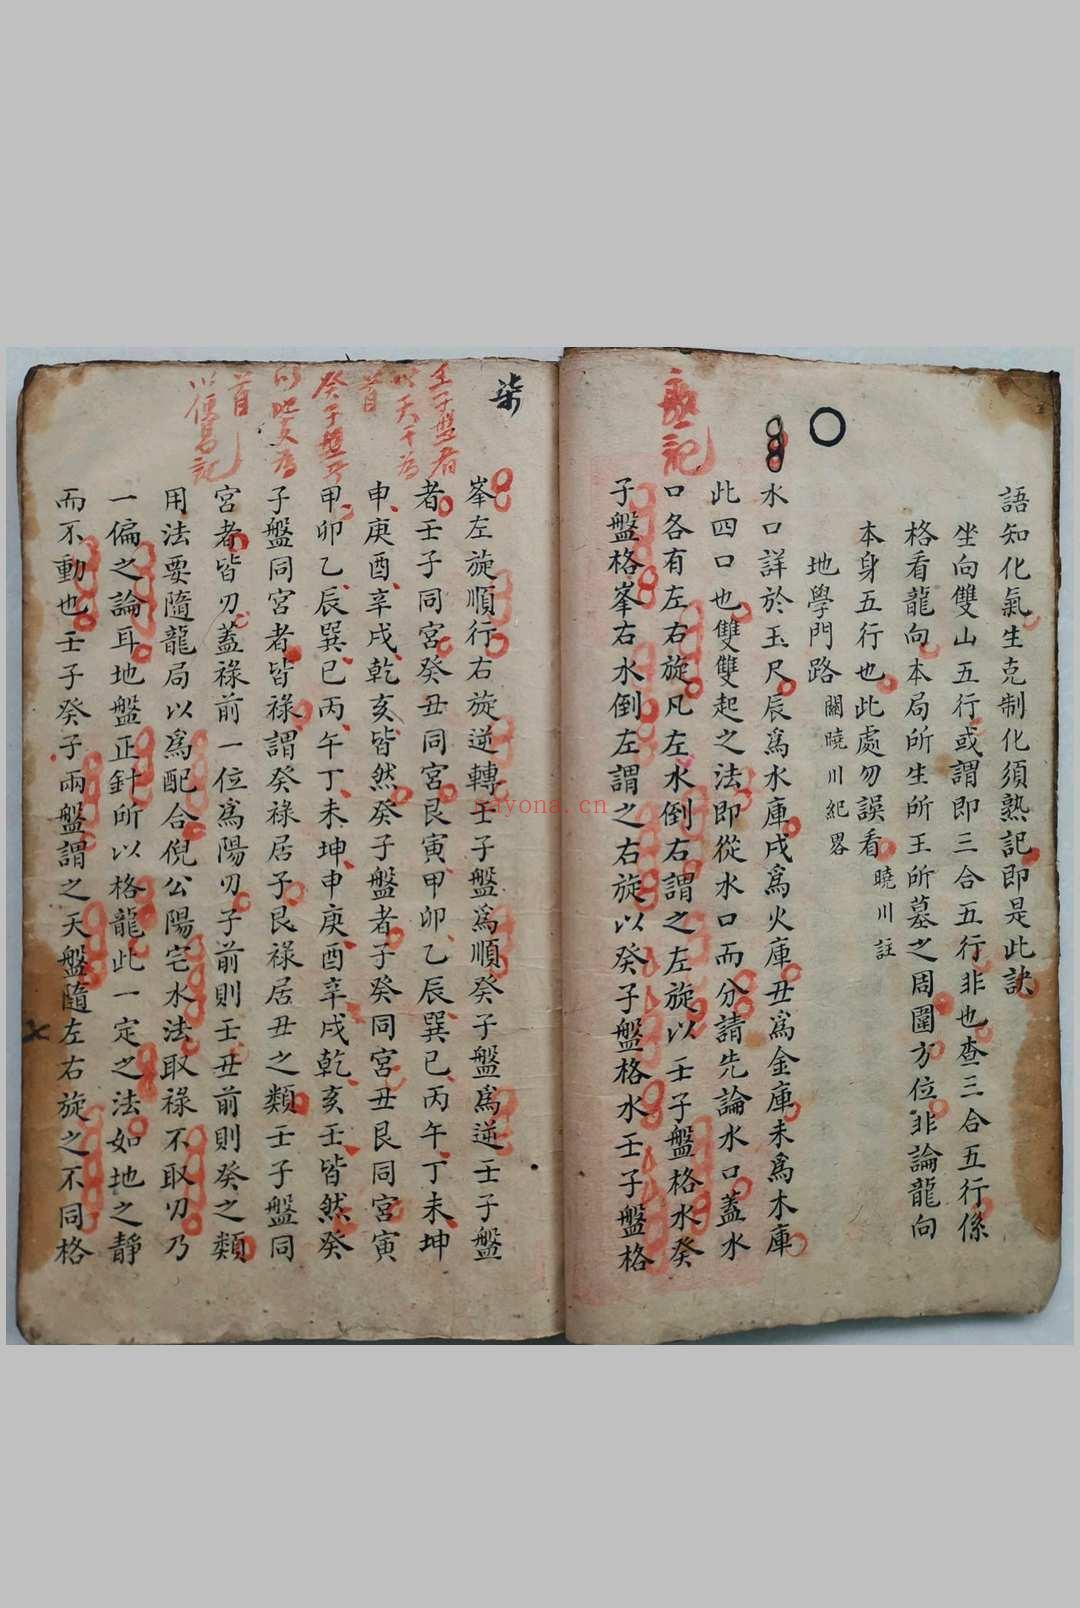 語知化氣生克制化須熟記即是此訣
坐向雙山五行或謂即三合五行非也查三合五行係
格看龍向本局所生所王所墓之周圍方位非論龍向
本身五行也此處勿誤看 曉川註
地學門路 關曉川紀畧
水口詳於玉尺辰爲水庫戌爲火庫丑爲金庫未爲木庫
此四口也雙雙起之法即從水口而分請先論水口蓋水
口各有左右旋凡左水倒右謂之左旋以壬子盤格水癸
子盤格峯右水倒左謂之右旋以癸子盤格水壬子盤格
記
柒
峯左旋順行右旋逆轉壬子盤爲順癸子盤爲逆壬子盤
者壬子同宮癸丑同宮艮寅甲卯乙辰巽巳丙午丁未坤
申庚酉辛戌乾亥皆然癸子盤者子癸同宮丑艮同宮寅
甲卯乙辰巽巳丙午丁未坤申庚酉辛戌乾亥壬皆然癸
子盤同宮者皆祿謂癸祿居子艮祿居丑之類壬子盤同
宮者皆刃蓋祿前一位爲陽刃子前則壬丑前則癸之類
用法要隨龍局以爲配合倪公陽宅水法取祿不取刃乃
一偏之論耳地盤正針所以格龍此一定之法如地之靜
而不動也壬子癸子兩盤謂之天盤隨左右旋之不同格
壬子盤看
以天干爲
首
癸子盤看
以地支爲
首
以便易記
nayona.cn